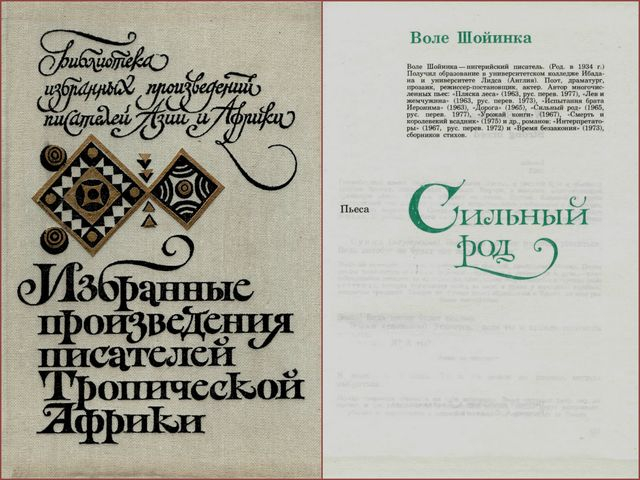 Библиотека
избранных произведений
писателей Азии и Африки
Избранные
произведения
писателей
Тропической
Африки
Воле Шойинка
Воле Шойинка — нигерийский писатель. (Род. в 1934 г.)
Получил образование в университетском колледже Ибада-
на и университете Лидса (Англия). Поэт, драматург,
прозаик, режиссер-постановщик, актер. Автор многочис-
ленных пьес: «Пляска леса» (1963, рус. перев. 1977), «Лев и
жемчужина» (1963, рус. перев. 1973), «Испытания брата
Иеронима» (1963), «Дорога» (1965), «Сильный род» (1965,
рус. перев. 1977), «Урожай конги» (1967), «Смерть и
королевский всадник» (1975) и др., романов: «Интерпретато-
ры» (1967, рус. перев. 1972) и «Время беззакония» (1973),
сборников стихов.
Пьеса
Сильный
род